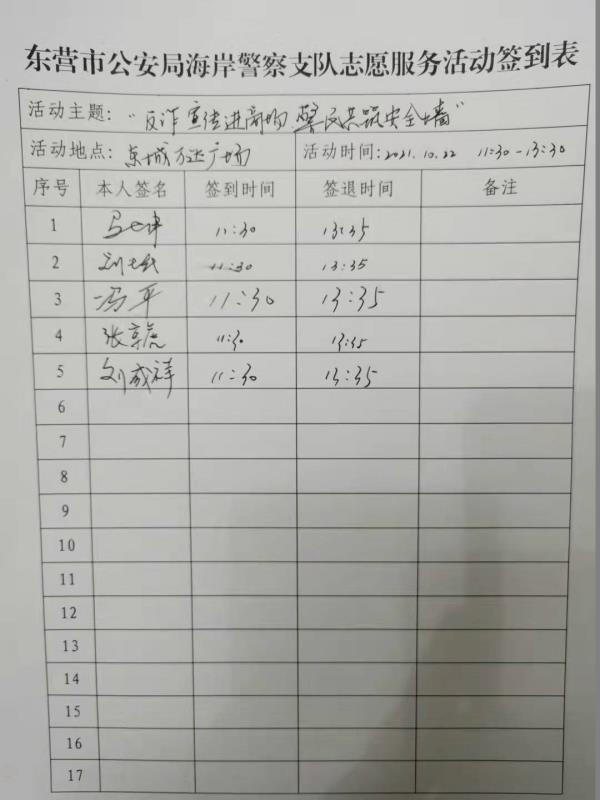 东营市公安局海岸警察支队志愿服务活动签到表
活动主题："反诈宣传进商场 警民共筑安全墙"
活动地点：东城万达广场 活动时间：2021.10.22 11:30-13:30
序号 本人签名 签到时间 签退时间 备注
1 11:30 13:35
2 11:30 13:35
3 冯平 11:30 13:35
4 张京虎 11:30 13:35
5 刘成祥 11:30 13:35
6
7
8
9
10
11
12
13
14
15
16
17